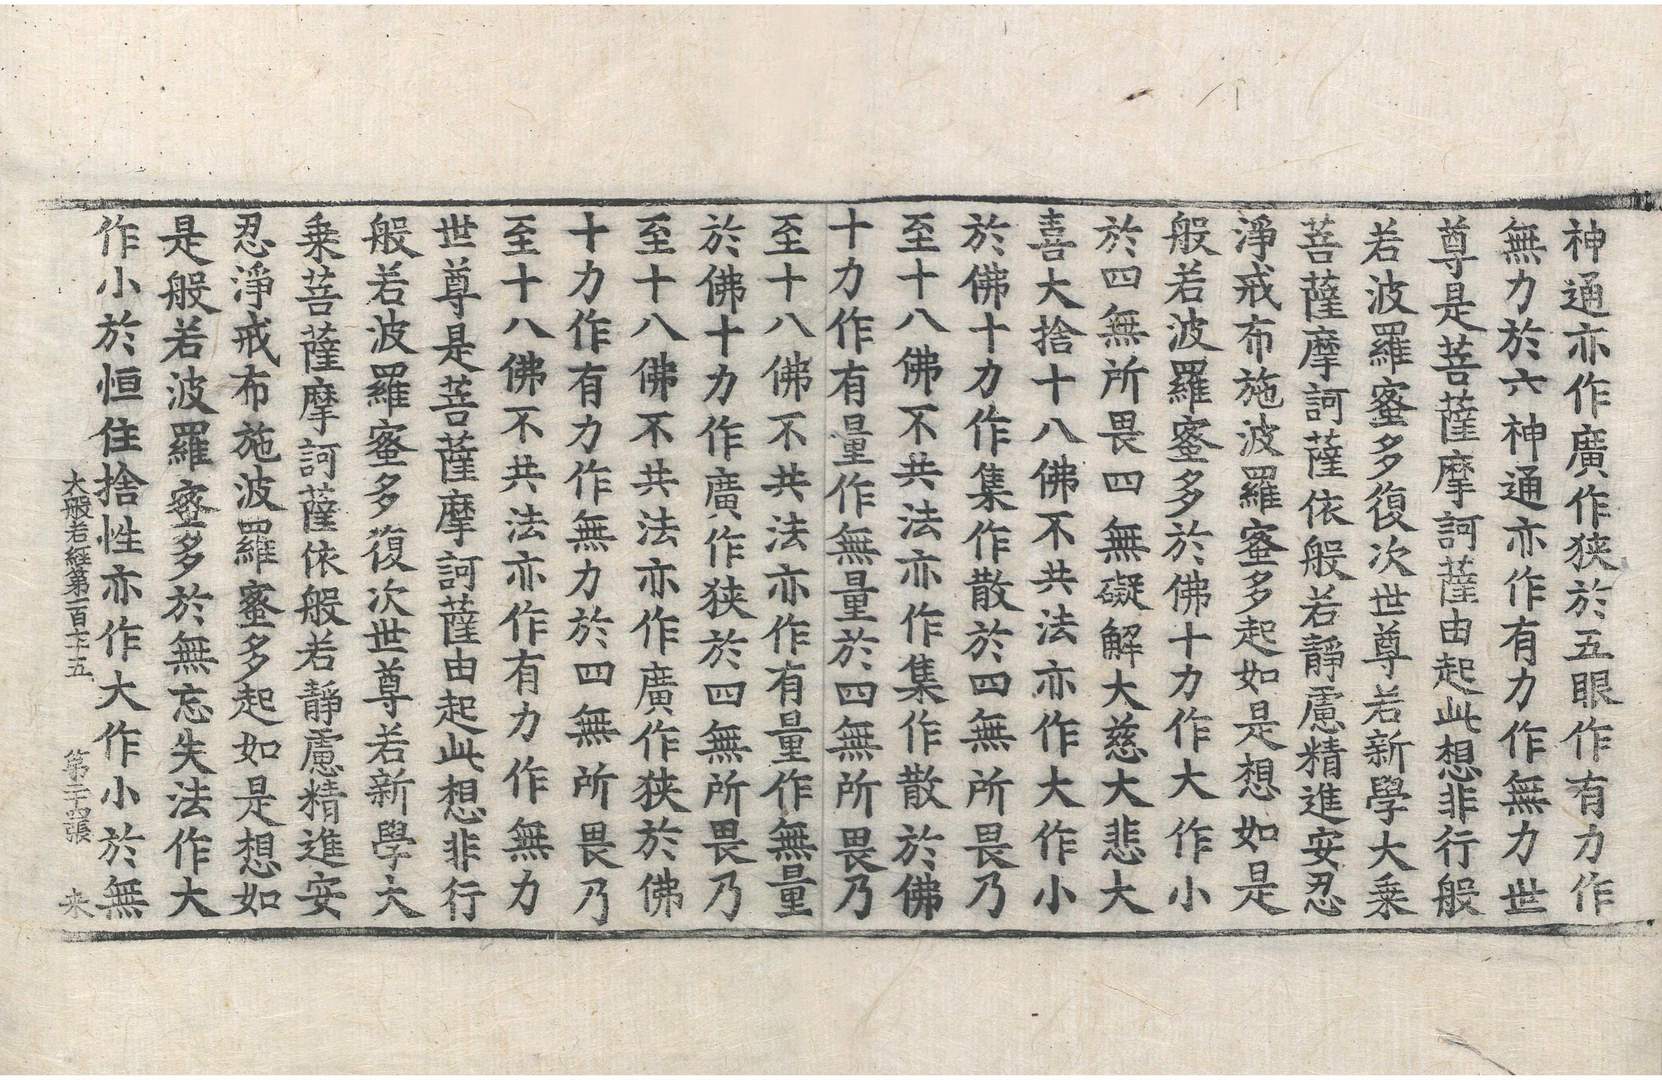 神通亦作廣作狹於五眼作有力作
無力於六神通亦作有力作無力世
尊是菩薩摩訶薩由起此想非行般
若波羅蜜多復次世尊若新學大乗
菩薩摩訶薩依般若靜慮精進安忍
淨戒布施波羅蜜多起如是想如是
般若波羅蜜多於佛十力作大作小
於四無所畏四無礙解大慈大悲大
喜大捨十八佛不共法亦作大作小
於佛十力作集作散於四無所畏乃
至十八佛不共法亦作集作散於佛
十力作有量作無量於四無所畏乃
至十八佛不共法亦作有量作無量
於佛十力作廣作狹於四無所畏乃
至十八佛不共法亦作廣作狹於佛
十力作有力作無力於四無所畏乃
至十八佛不共法亦作有力作無力
世尊是菩薩摩訶薩由起此想非行
般若波羅蜜多復次世尊若新學大
乗菩薩摩訶薩依般若靜慮精進安
忍淨戒布施波羅蜜多起如是想如
是般若波羅蜜多於無忘失法作大
作小於恒住捨性亦作大作小於無
大般若經第一百七十五 第二十四張 来